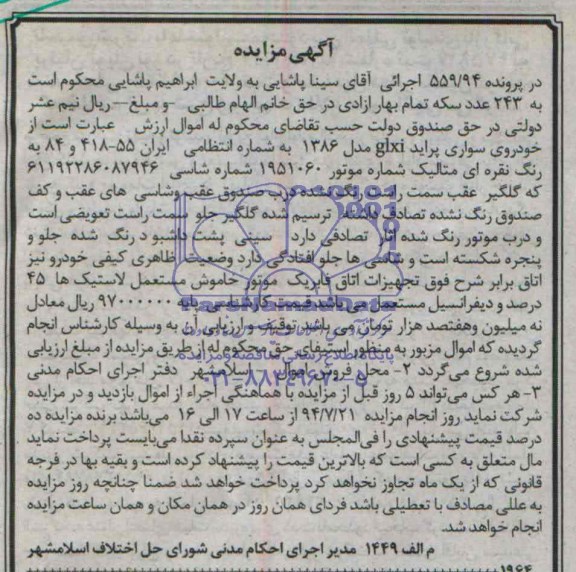 آگهی مزایده
در پرونده ۵۵۹/۹۴ اجرائی آقای سینا پاشایی به ولایت ابراهیم پاشایی محکوم است
به ۲۴۳ عدد سکه تمام بهار ازادی در حق خانم الهام طالبی – و مبلغ – ریال نیم عشر
دولتی در حق صندوق دولت حسب تقاضای محکوم له اموال ارزش عبارت است از
خودروی سواری پراید glxi مدل ۱۳۸۶ به شماره انتظامی ایران ۵۵-۴۱۸ و ۸۴ به
رنگ نقره ای متالیک شماره موتور ۱۹۵۱۰۶۰ شماره شاسی ۶۱۱۹۲۲۸۶۰۸۷۹۴۶
که گلگیر عقب سمت راست رنگ شده درب صندوق عقب وشاسی های عقب و کف
صندوق رنگ نشده تصادف داشته ترسیم شده گلگیر جلو سمت راست تعویضی است
و درب موتور رنگ شده اثار تصادفی دارد سینی پشت داشبو د رنگ شده جلو و
پنجره شکسته است و شاسی ها جلو افتادگی دارد وضعیت ظاهری کیفی خودرو نیز
اتاق برابر شرح فوق تجهیزات اتاق فابریک موتور خاموش مستعمل لاستیک ها ۴۵
درصد و دیفرانسیل مستعمل می باشد قیمت کارشناسی پایه ۹۷۰۰۰۰۰۰ ریال معادل
نه میلیون وهفتصد هزار تومان می باشد توقیف و ارزیابی ان به وسیله کارشناس انجام
گردیده که اموال مزبور به منظور استیفای حق محکوم له از طریق مزایده از مبلغ ارزیابی
شده شروع می گردد ۲- محل فروش اموال اسلامشهر دفتر اجرای احکام مدنی
۳- هر کس می‌تواند ۵ روز قبل از مزایده با هماهنگی اجراء از اموال بازدید و در مزایده
شرکت نماید روز انجام مزایده ۹۴/۷/۲۱ از ساعت ۱۷ الی ۱۶ می‌باشد برنده مزایده ده
درصد قیمت پیشنهادی را فی‌المجلس به عنوان سپرده نقدا می‌بایست پرداخت نماید
مال متعلق به کسی است که بالاترین قیمت را پیشنهاد کرده است و بقیه بها در فرجه
قانونی که از یک ماه تجاوز نخواهد کرد پرداخت خواهد شد ضمنا چنانچه روز مزایده
به عللی مصادف با تعطیلی باشد فردای همان روز در همان مکان و همان ساعت مزایده
انجام خواهد شد.
م الف ۱۴۴۹ مدیر اجرای احکام مدنی شورای حل اختلاف اسلامشهر
۱۹۶۴
ParsNamadData
پایگاه اطلاع رسانی مناقصه و مزایده
۰۲۱-۸۸۳۴۹۶۷۰-۵